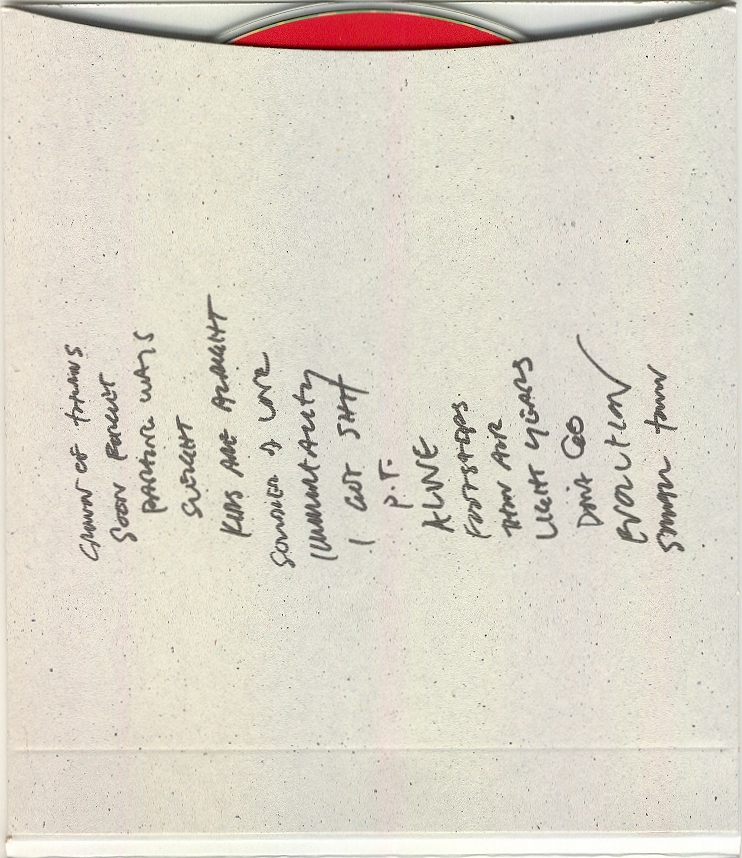 CROWN OF THORNS
SOON FORGET
PARTING WAYS
SLEIGHT
KIDS ARE ALRIGHT
SOLDIER OF LOVE
IMMORTALITY
I GOT SHIT
P.T.
ALIVE
FOOTSTEPS
THIN AIR
LIGHT YEARS
DON'T GO
EVOLUTION
SMALL TOWN